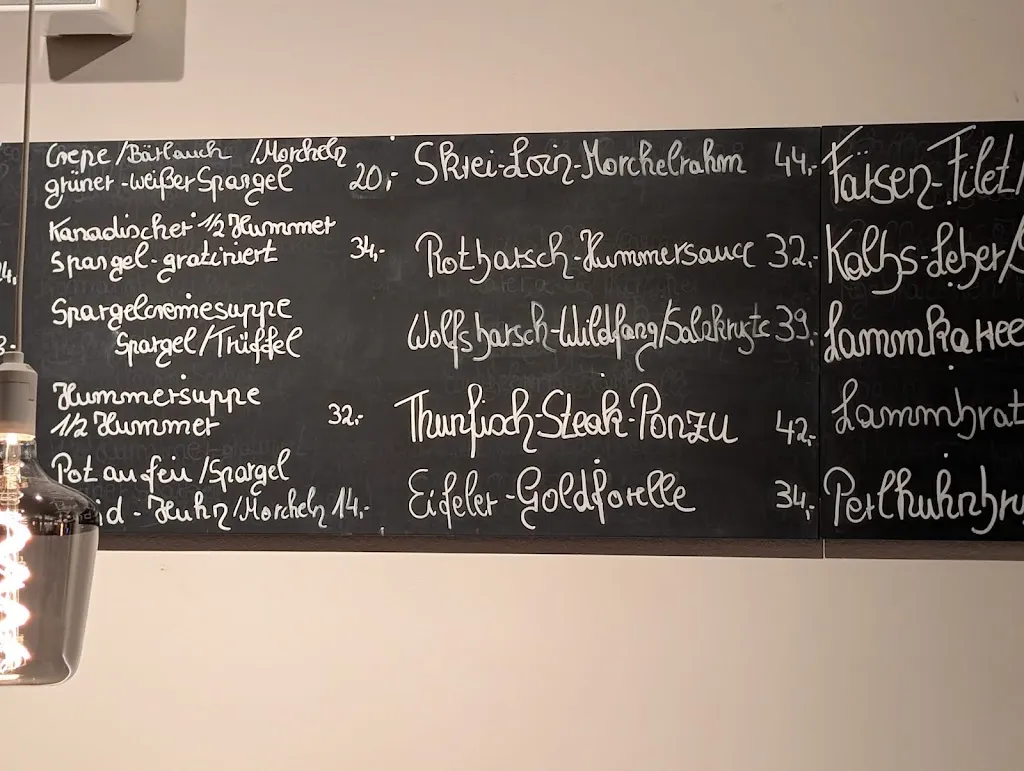 24,
8.-
Crepe/Bärlauch /Morcheln
grüner-weißer Spargel 20,-
Kanadischer 1/2 Hummer
Spargel-gratiniert 34,-
Spargelcremesuppe
Spargel/Trüffel
Hummersuppe
1/2 Hummer 32.-
Pot au feu/Spargel
d-Huhn/Morcheln 14,-
Skrei-Loin-Morchelrahm 44,-
Rotbarsch-Hummersauce 32.-
Wolfsbarsch-Wildfang/Salzkruste 39.-
Thunfisch-Steak-Ponzu 42,-
Eifeler-Goldforelle 34,-
Färsen-Filet/
Kalbs-Leber/
Lammkaree
Lammbrat
Perlhuhnbru